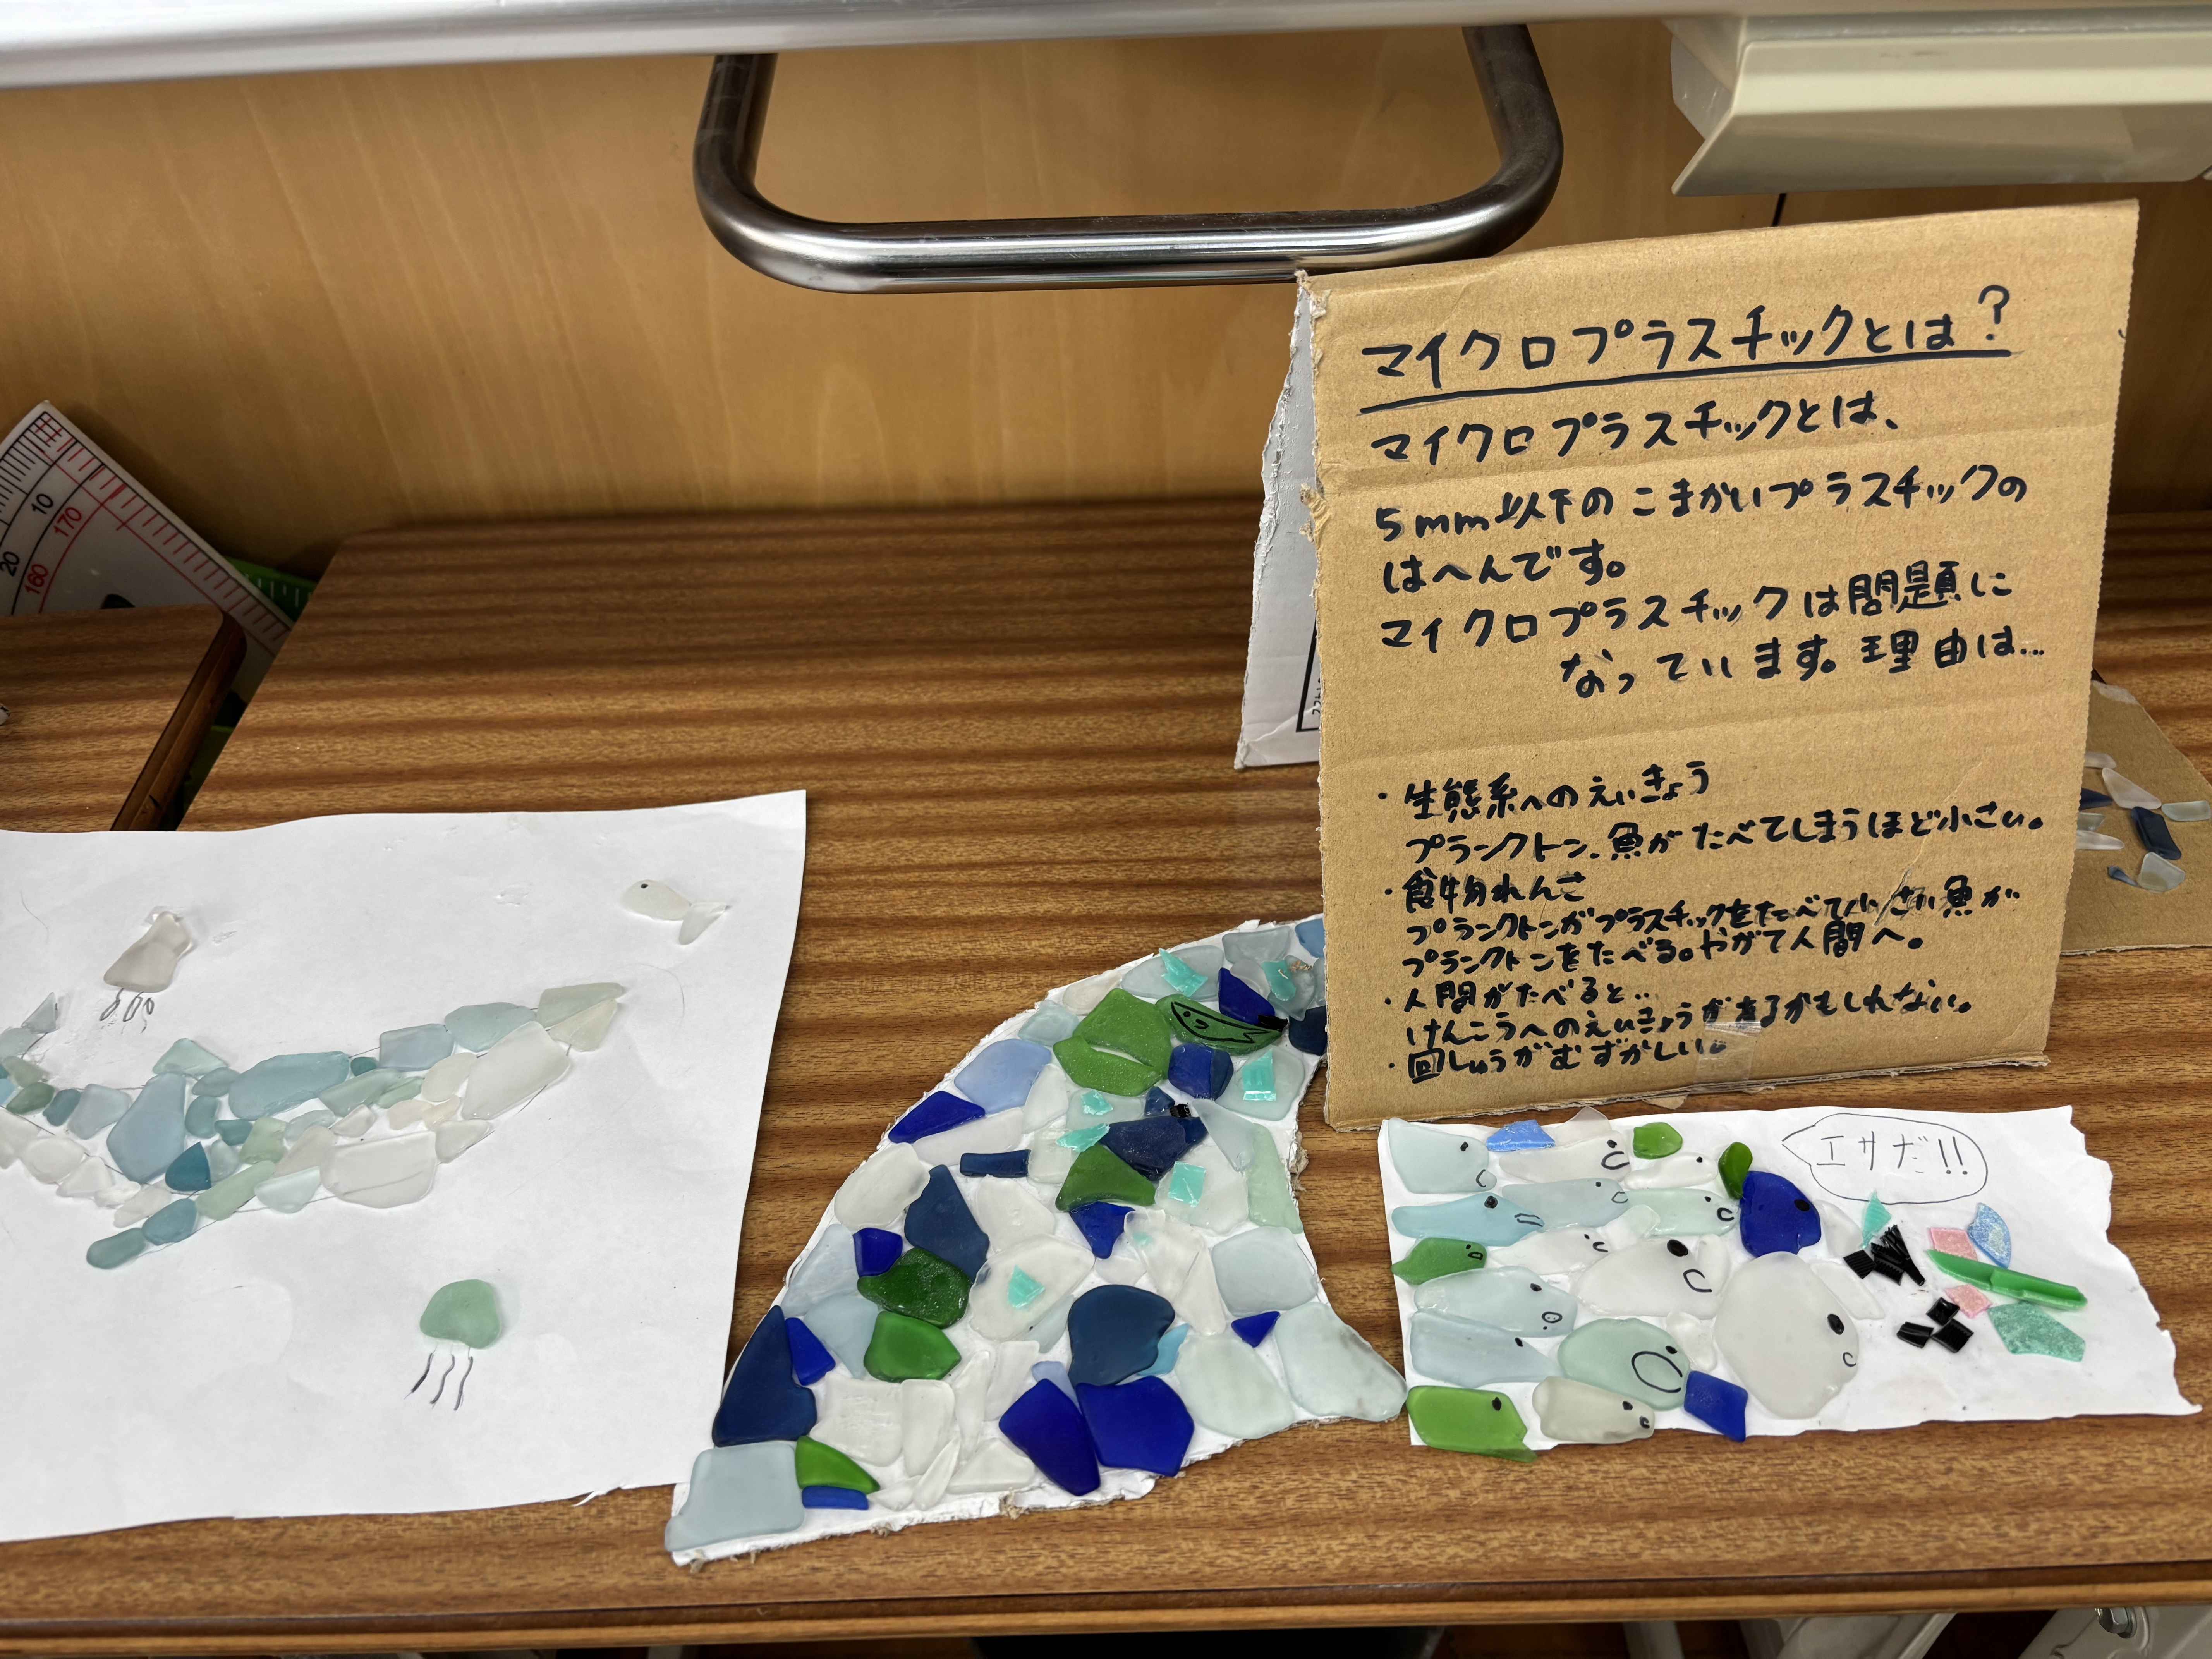 マイクロプラスチックとは?
マイクロプラスチックとは、
5mm以下のこまかいプラスチックの
はへんです。
マイクロプラスチックは問題に
なっています。理由は…
・生態系へのえいきょう
プランクトン、魚がたべてしまうほど小さい。
・食物れんさ
プランクトンがプラスチックをたべて小さい魚が
プランクトンをたべる。やがて人間へ。
・人間がたべると…
けんこうへのえいきょうが有るかもしれない。
・回しゅうがむずかしい。
エサだ!!
10
170
20
160